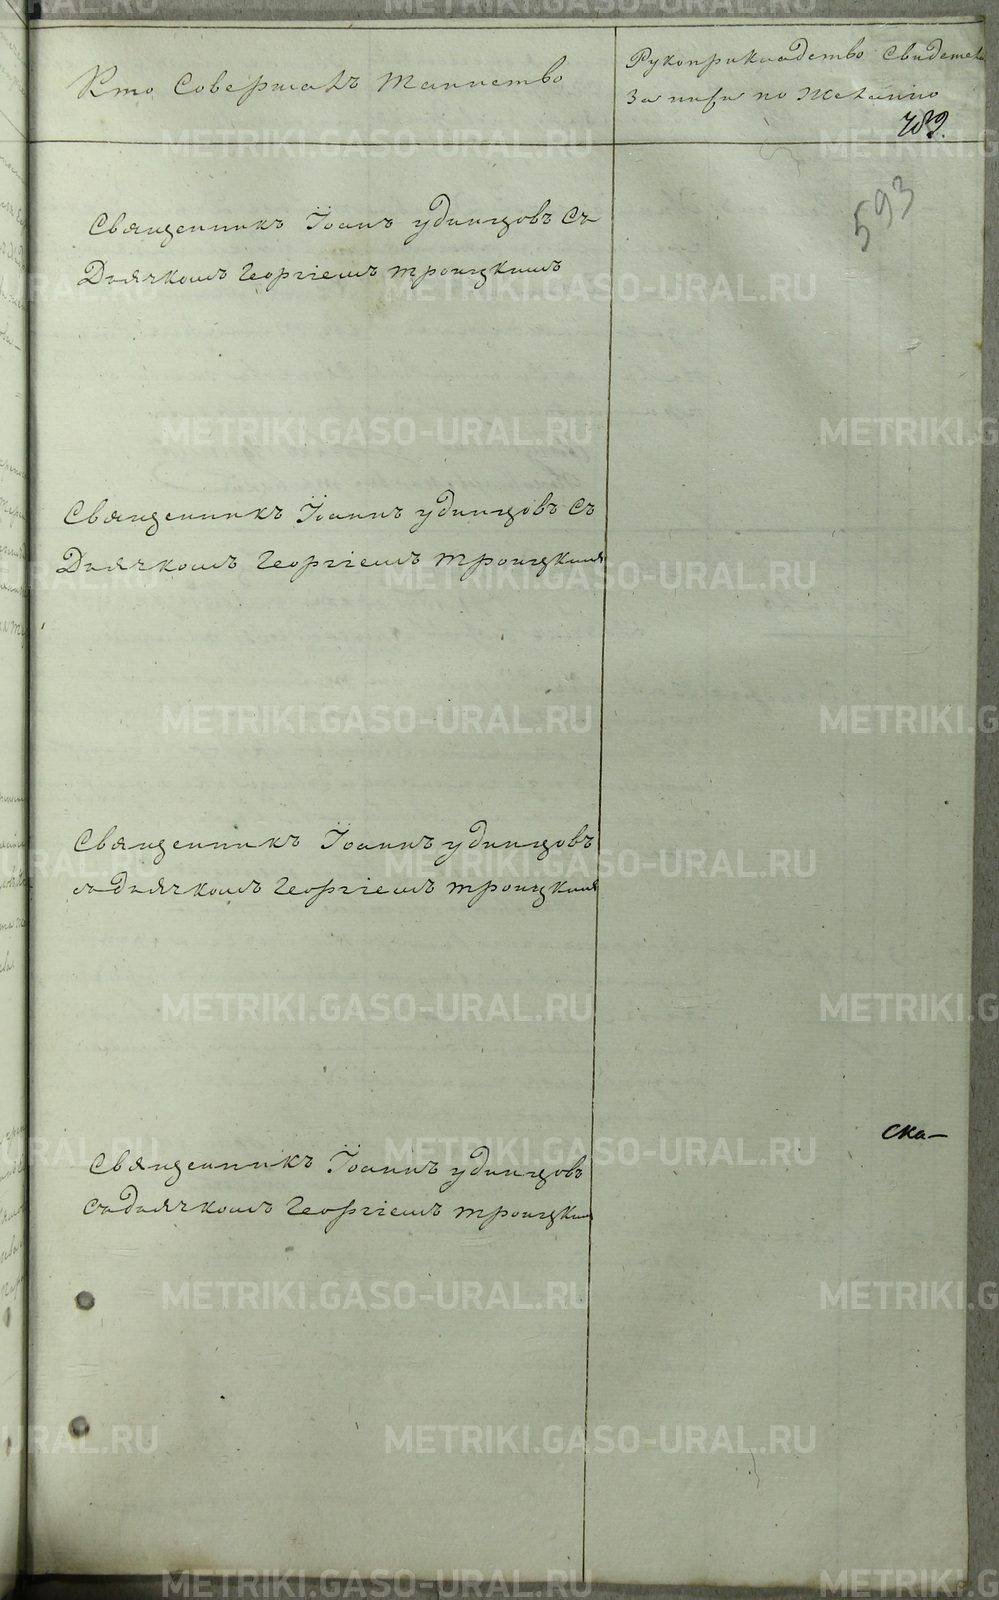 Кто Совершалъ таинство
Рукоприкладство Свидетел
Записи по Желанию
789.
593
Священникъ Їоанъ удинцовъ Съ
Дьячкомъ Георгіемъ троицкимъ
Священникъ Їоаннъ удинцовъ Съ
Дьячкомъ Георгіемъ троицкимъ
Священникъ Їоаннъ удинцовъ
съ дьячкомъ Георгіемъ троицкимъ
Священникъ Їоаннъ удинцовъ
Съ дьячкомъ Георгіемъ троицким
ска-
METRIKI.GASO-URAL.RU